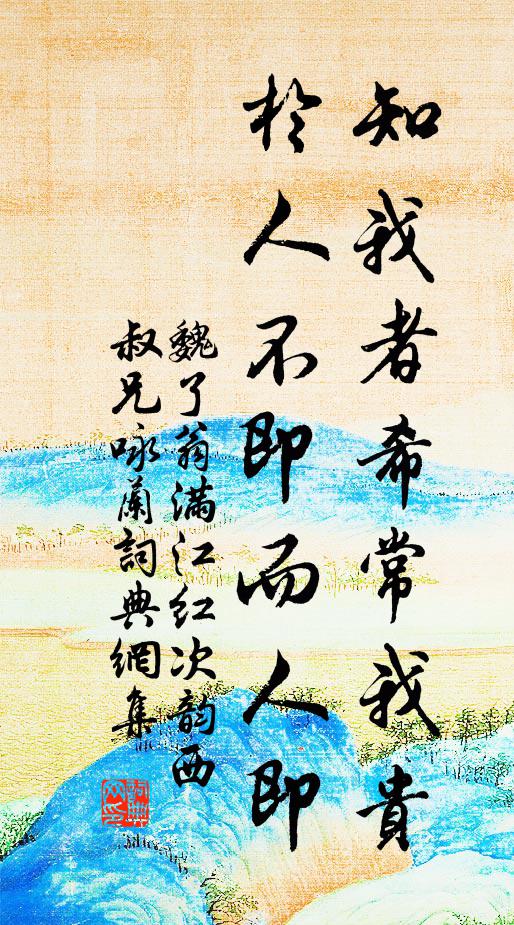 知我者希常我貴
於人不即而人即
魏了翁滿江紅次韵西
叔兄咏蘭詞典網集